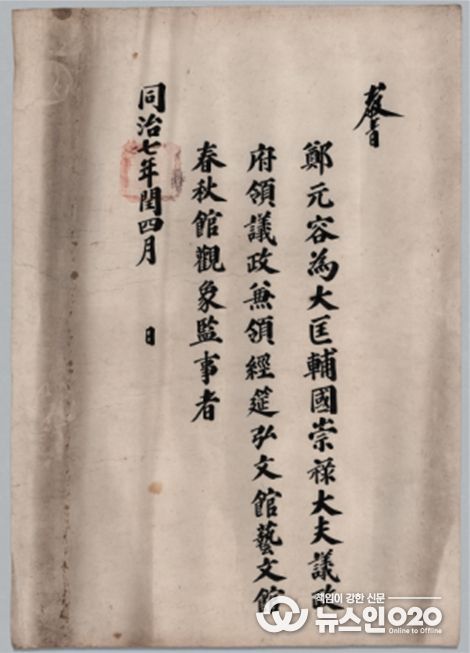 敎旨
鄭元容爲大匡輔國崇祿大夫議政
府領議政兼領經筵弘文館藝文館
春秋館觀象監事者
同治七年閏四月 日
책임이 강한 신문
뉴스인020
Online to Offline